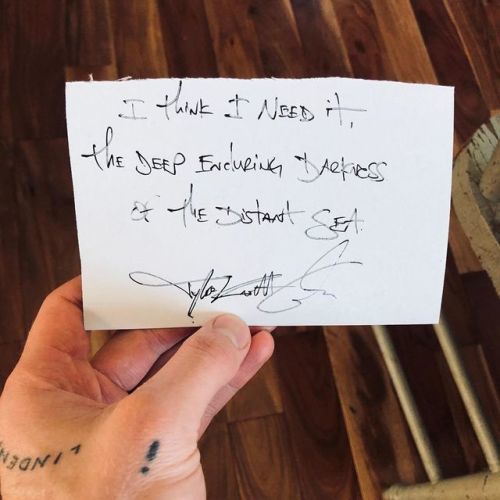 I think I need it,
the deep enduring darkness
of the distant sea.
Tyler Knott Gregson
LINDEN